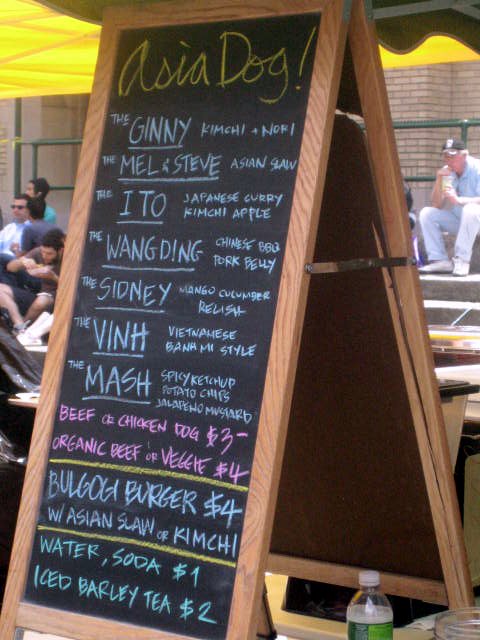 Asia Dog!
THE GINNY KIMCHI + NORI
THE MEL & STEVE ASIAN SLAW
THE ITO JAPANESE CURRY
KIMCHI APPLE
THE WANGDING CHINESE BBQ
PORK BELLY
THE SIDNEY MANGO CUCUMBER
RELISH
THE VINH VIETNAMESE
BANH MI STYLE
THE MASH SPICY KETCHUP
POTATO CHIPS
JALAPEÑO MUSTARD
BEEF OR CHICKEN DOG $3-
ORGANIC BEEF OR VEGGIE $4
BULGOGI BURGER $4
W/ ASIAN SLAW OR KIMCHI
WATER, SODA $1
ICED BARLEY TEA $2